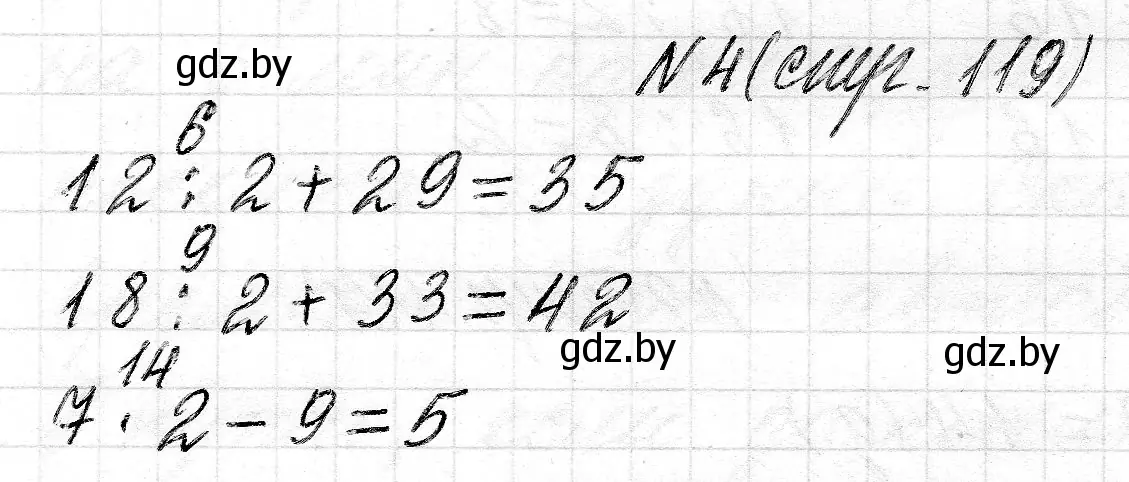 gdz.by
N 4 (стр. 119)
6
12 : 2 + 29 = 35
9
18 : 2 + 33 = 42
gdz.by
gdz.by
14
7 · 2 - 9 = 5